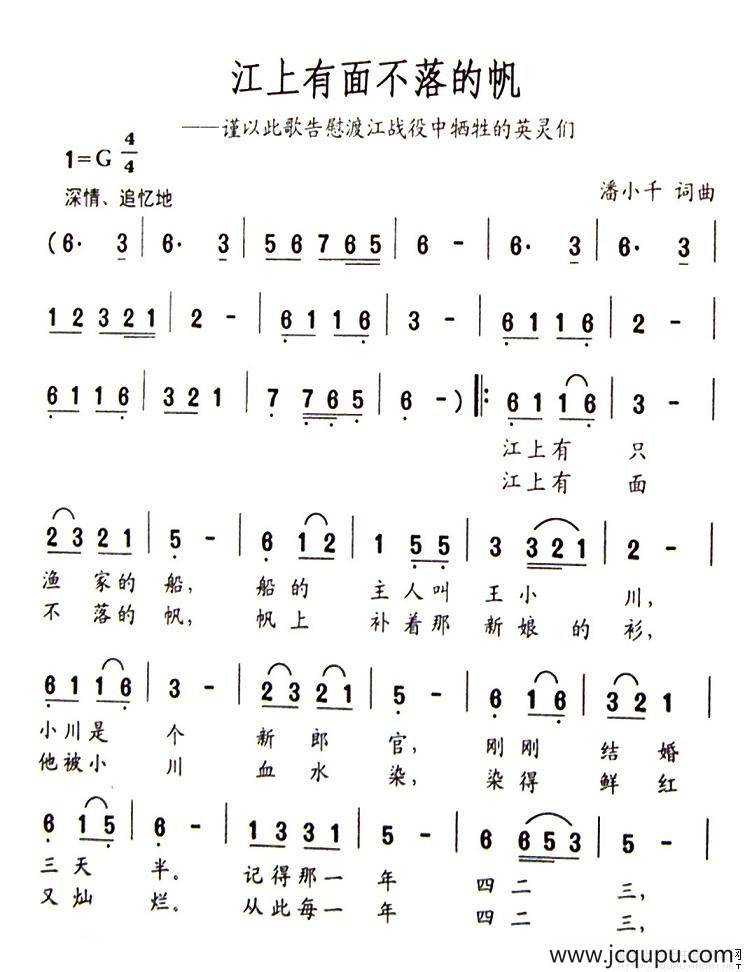 江上有面不落的帆
——谨以此歌告慰渡江战役中牺牲的英灵们
1=G 4/4
深情、追忆地
潘小千 词曲
(6· 3 | 6· 3 | 5 6 7 6 5 | 6 - | 6· 3 | 6· 3 |
1 2 3 2 1 | 2 - | 6 1 1 6 | 3 - | 6 1 1 6 | 2 - |
6 1 1 6 | 3 2 1 | 7 7 6 5 | 6 - ) |: 6 1 1 6 | 3 - |
江上有 只
江上有 面
2 3 2 1 | 5 - | 6 1 2 | 1 5 5 | 3 3 2 1 | 2 - |
渔家的船, 船的 主人叫 王小 川,
不落的帆, 帆上 补着那 新娘的衫,
6 1 1 6 | 3 - | 2 3 2 1 | 5 - | 6 1 6 | 3 2 1 |
小川是 个 新郎 官, 刚刚 结婚
他被小 川 血水 染, 染得 鲜红
6 1 5 | 6 - | 1 3 3 1 | 5 - | 6 6 5 3 | 3 - |
三天 半。 记得那一 年 四二 三,
又灿 烂。 从此每一 年 四二 三,
www.jcqupu.com